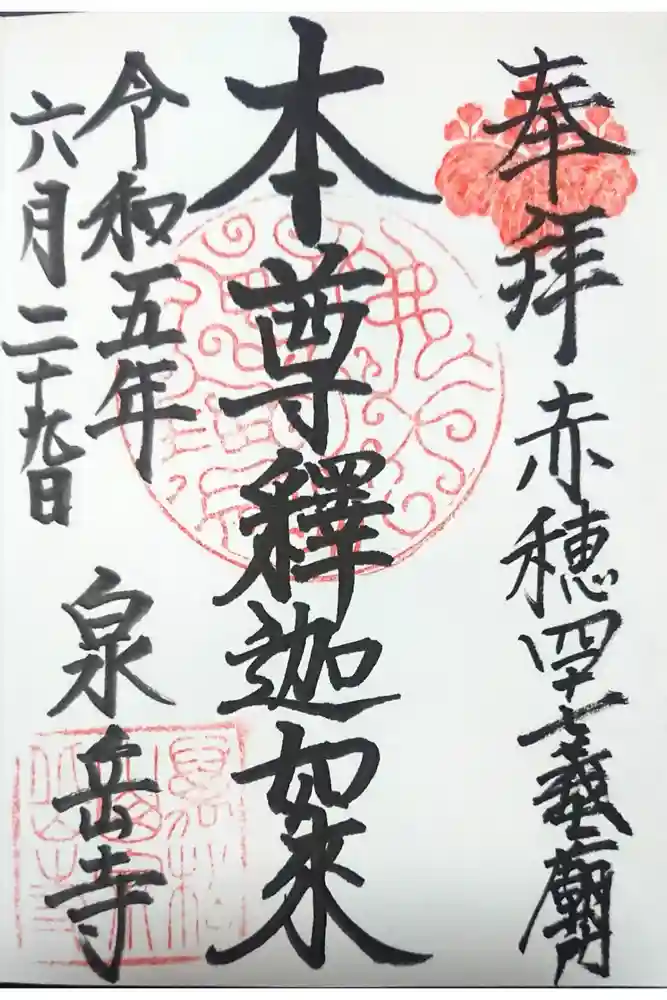 奉拝 赤穂四十七義士廟
本尊釋迦如来
令和五年
六月二十九日
泉岳寺